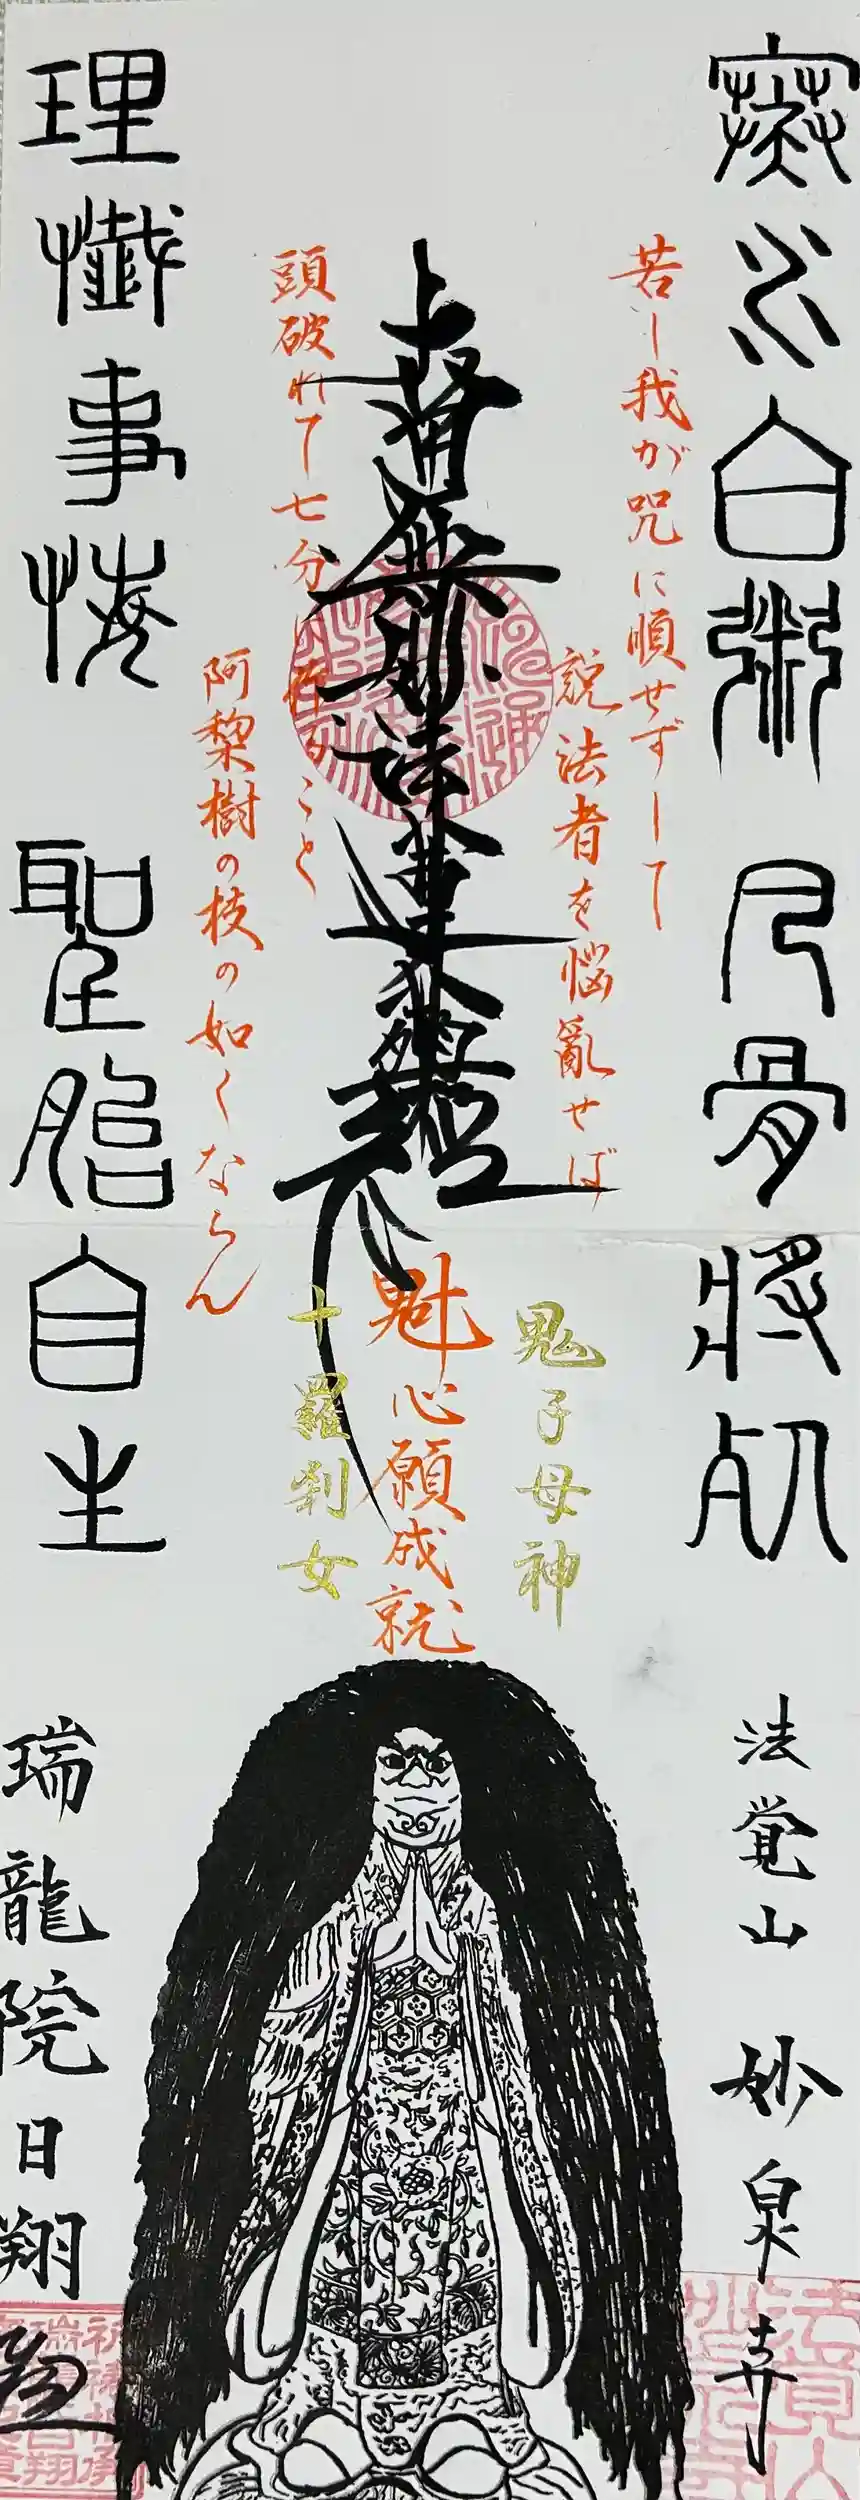 寒水白粥 凡骨将死
若し我が咒に順せずして
説法者を悩亂せば
南無妙法蓮華經
頭破れて七分に作ること
阿黎樹の枝の如くならん
理懺事悔 聖胎自生
鬼子母神
魁 心願成就
十羅刹女
法覚山 妙泉寺
瑞龍院日翔